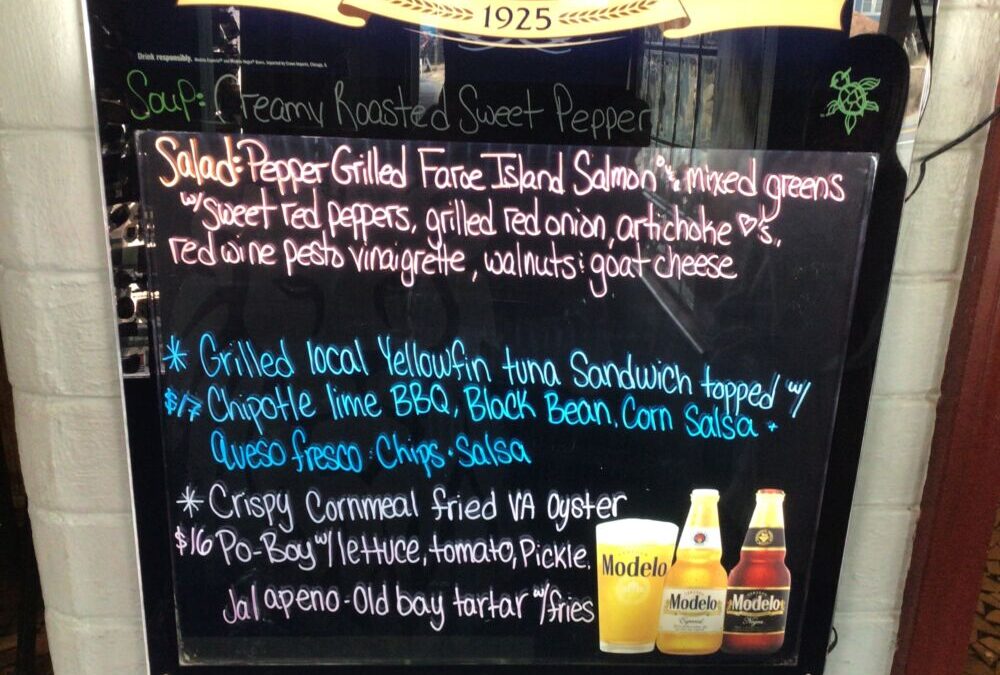 1925
Drink responsibly.
Soup: Creamy Roasted Sweet Pepper
Salad: Pepper Grilled Faroe Island Salmon mixed greens
w/ sweet red peppers, grilled red onion, artichoke ♡'s,
red wine pesto vinaigrette, walnuts & goat cheese
* Grilled local Yellowfin tuna Sandwich topped w/
$17 Chipotle lime BBQ, Black Bean. Corn Salsa +
Queso fresco. Chips. Salsa
* Crispy Cornmeal fried VA Oyster
$16 Po-Boy w/ lettuce, tomato, Pickle,
Jalapeno-Old bay tartar w/ fries
Modelo
Modelo
Especial
Modelo
Negra